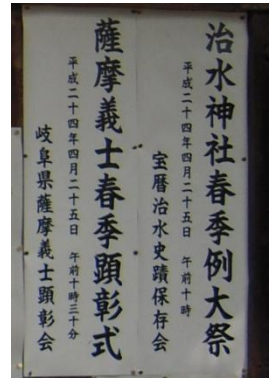 治水神社春季例大祭
平成二十四年四月二十五日 午前十時
宝暦治水史蹟保存会
薩摩義士春季顕彰式
平成二十四年四月二十五日 午前十時三十分
岐阜県薩摩義士顕彰会